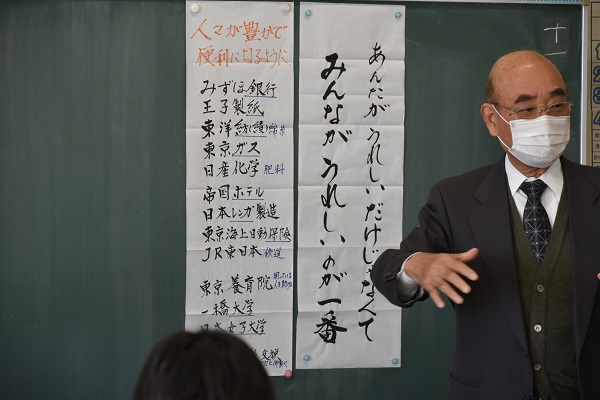 人々が豊かで
便利になるように
みずほ銀行
王子製紙
東洋紡績 綿糸
東京ガス
日産化学 肥料
帝国ホテル
日本レンガ製造
東京海上日動保険
JR東日本 鉄道
東京養育院
一橋大学
日本女子大学
あんたがうれしいだけじゃなくて
みんながうれしいのが一番
十一